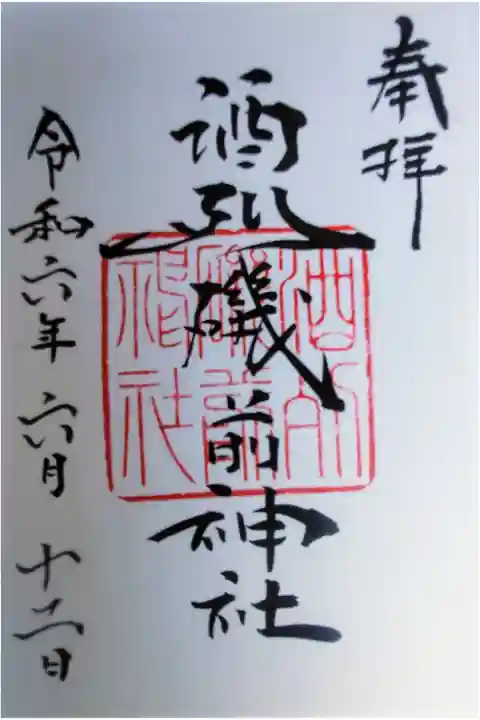 奉拝
酒列磯前神社
令和六年六月十二日
酒列
磯前
神社